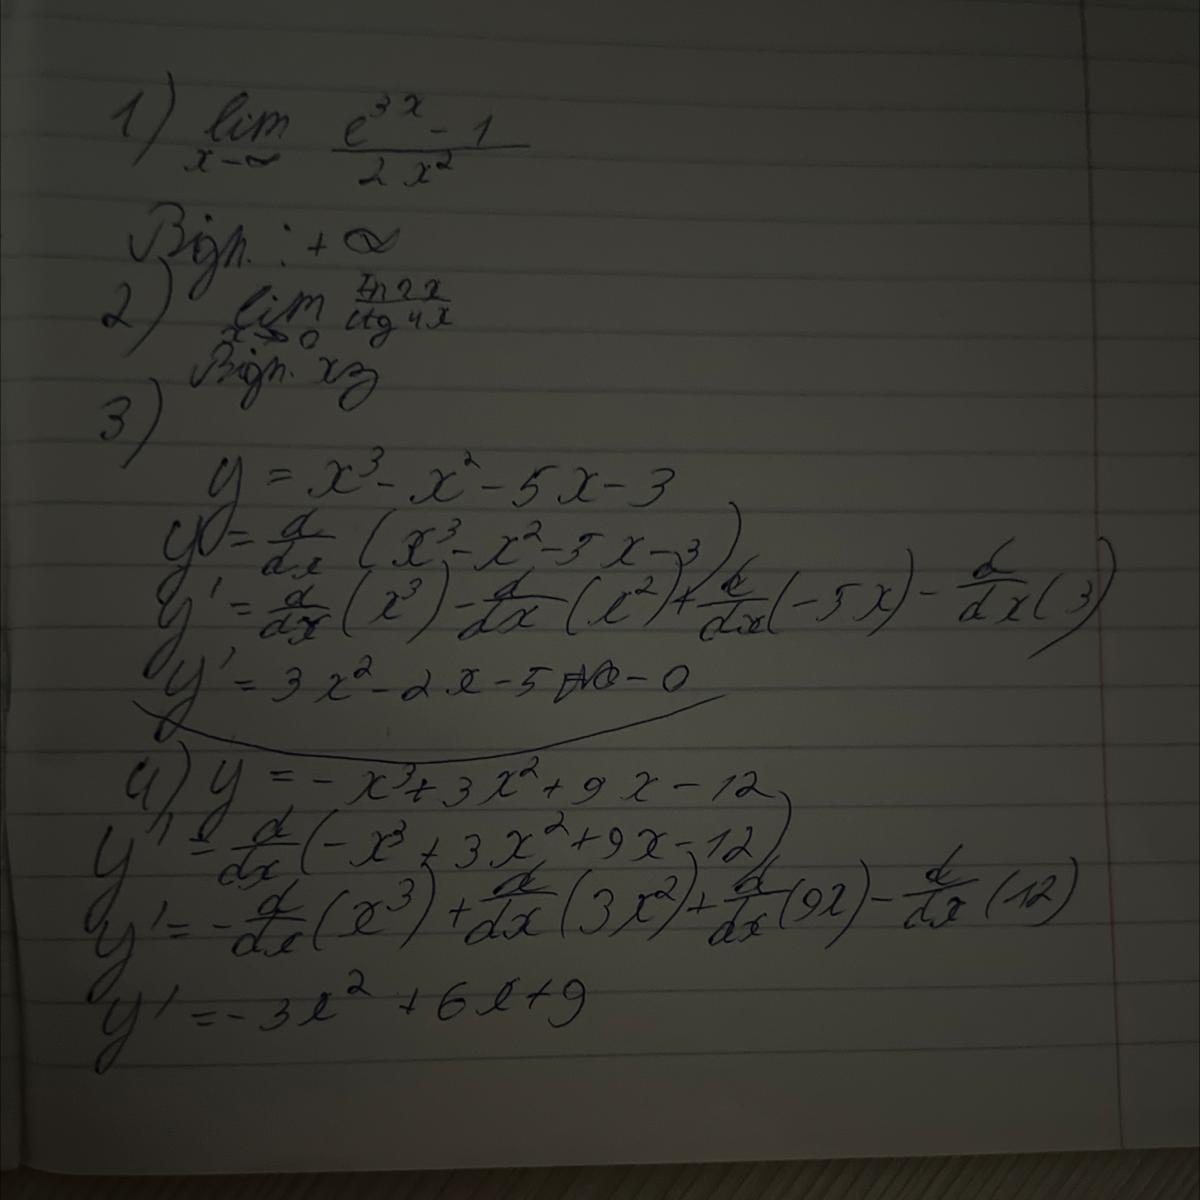 1) lim x→∞ (e^{3x} - 1)/(2x²)
Відп. : + ∞
2) lim x→0 (ln 2x)/(ctg 4x)
Відп. хз
3)
y = x³ - x² - 5x - 3
y' = d/dx (x³ - x² - 5x - 3)
y' = d/dx (x³) - d/dx (x²) + d/dx (-5x) - d/dx (3)
y' = 3x² - 2x - 5 - 0
4) y = - x³ + 3x² + 9x - 12
y' = d/dx (-x³ + 3x² + 9x - 12)
y' = - d/dx (x³) + d/dx (3x²) + d/dx (9x) - d/dx (12)
y' = - 3x² + 6x + 9